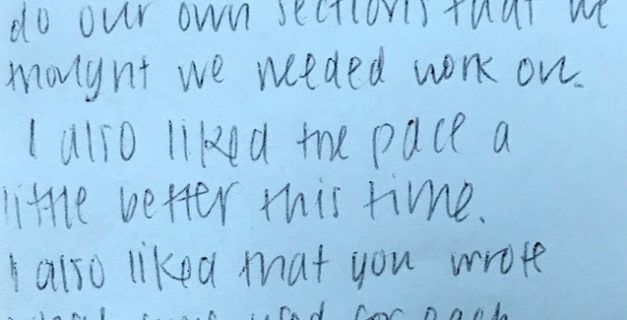 do our own sections that we
thought we needed work on.
I also liked the pace a
little better this time.
I also liked that you wrote
what was used for each